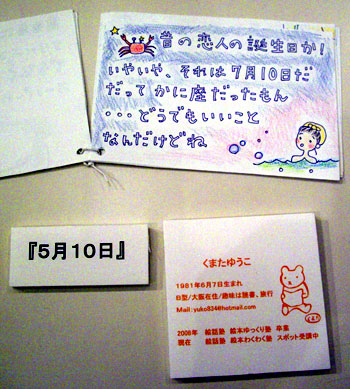 昔の恋人の誕生日か!
いやいや、それは7月10日だ
だって かに座だったもん
・・・どうでもいいこと
なんだけどね
『5月10日』
くまたゆうこ
1981年6月7日生まれ
B型/大阪在住/趣味は読書、旅行
Mail:yuko834@hotmail.com
2008年 絵話塾 絵本ゆっくり塾 卒業
現在 絵話塾 絵本わくわく塾 スポット受講中